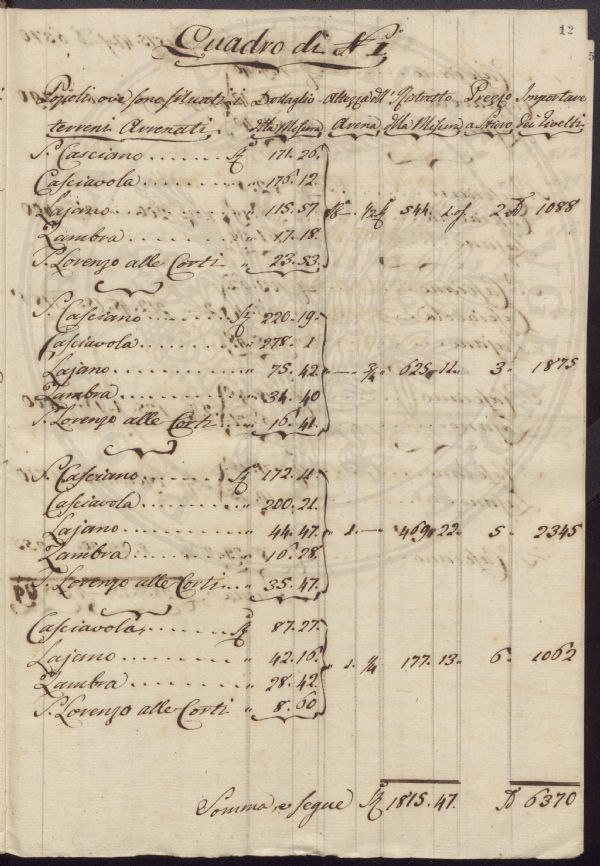 12
Quadro di N 1
Popoli ove sono situati Dettaglio Altezza dell' Ristretto Prezzo Importare
terreni Arrenati. della Misura Arena della Misura a Stioro dei Livelli
S. Casciano 171. 26.
Casciavola 176. 12.
Lajano 115. 57. 1/2 544. 1. 2 1088
Zambra " 17. 18.
S. Lorenzo alle Corti " 23. 53.
S. Casciano 220. 19.
Casciavola " 278. 1
Lajano " 75. 42. 3/4 " 625. 11. 3 " 1875
Zambra " 34. 40
S. Lorenzo alle Corti " 16. 41.
S. Casciano 172. 11.
Casciavola " 200. 21.
Lajano " 44. 47. " 1. 469. 22. 5 " 2345
Zambra " 16. 28.
S. Lorenzo alle Corti " 35. 47.
Casciavola 87. 27.
Lajano " 42. 16. " 1. 1/4 177. 13. 6 " 1062
Zambra " 28. 42.
S. Lorenzo alle Corti " 8. 60
Somma, e segue 1815. 47. 6370